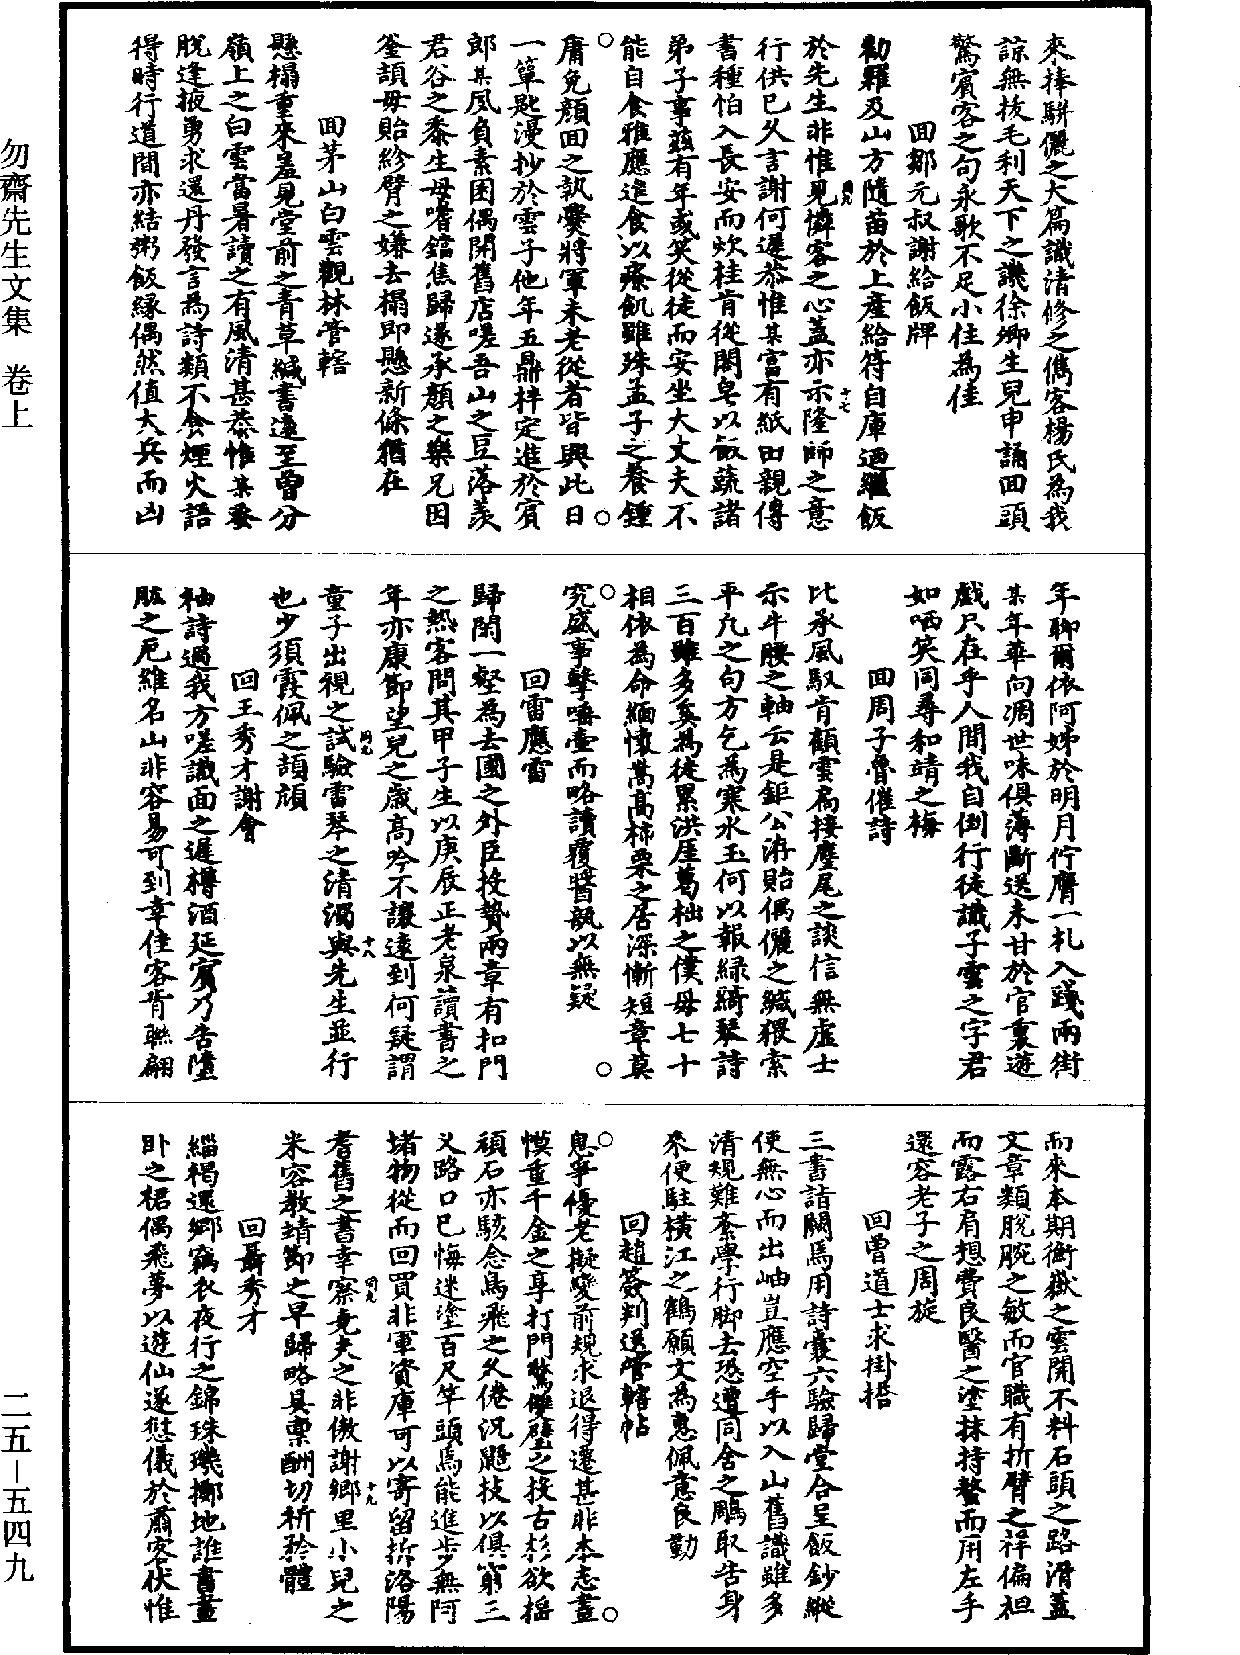 來捧駢儷之大篇識清修之儁客楊氏為我
諒無拔毛利天下之譏徐卿生兒申誦回頭
驚賓客之句永歌不足小住為佳
回鄒元叔謝給飯牌
勸羅及山方隨苗於上產給符自庫迺繼飯
於先生非惟見憐客之心蓋亦示隆師之意
行供已久言謝何遲恭惟某富有紙田親傳
書種怕入長安而炊桂肯從閤皂以飯蔬諸
弟子事茲有年或笑從徒而安坐大丈夫不
能自食雅應進食以療飢雖殊孟子之養鍾
庸免顏回之執爨將軍未老從者皆興此日
一簞匙漫抄於雲子他年五鼎柈定進於賓
郎某夙負素困偶開舊店嗟吾山之豆落羨
君谷之黍生毋嗜鐺焦歸遂承顏之樂兄因
釜頡毋貽紾臂之嫌去榻即懸新條猶在
回茅山白雲觀林管轄
懸榻重來羞見堂前之青草緘書遠至曾分
嶺上之白雲當暑讀之有風清甚恭惟某蚤
脫逢掖勇求還丹發言為詩類不食煙火語
得時行道間亦結粥飯緣偶然值大兵而凶
年聊爾依阿姊於明月佇膺一札入踐兩街
某年華向凋世味俱薄斷送未甘於官裏遊
戲只在乎人間我自倒行徒識子雲之字君
如哂笑同尋和靖之梅
回周子魯催詩
比承風馭肯顧雲扃接麈尾之談信無虛士
示牛腰之軸云是鉅公洊貽偶儷之緘猥索
平凡之句方乞為寒水玉何以報綠綺琴詩
三百雖多奚為徒累洪厓葛柮之僕毋七十
相依為命緬懷嵩高柿栗之居深慚短章莫
究盛事擊唾壺而略讀覆醬瓿以無疑
回雷應雷
歸閑一壑為去國之外臣投贄兩章有扣門
之熱客問其甲子生以庚辰正老泉讀書之
年亦康節望兒之歲高吟不讓遠到何疑謂
童子出視之試驗雷琴之清濁與先生並行
也少須霞佩之頡頏
回王秀才謝會
軸詩過我方嗟識面之遲樽酒延賓乃告墮
肱之厄維名山非容易可到幸佳客肯聯翩
而來本期衡嶽之雲開不料石頭之路滑蓋
文章類脫腕之敏而官職有折臂之祥偏袒
而露右肩想費良醫之塗抹持螯而用左手
還容老子之周旋
回曾道士求掛搭
三書詣闕焉用詩囊六驗歸堂合呈飯鈔縱
使無心而出岫豈應空手以入山舊識雖多
清規難紊學行脚去恐遭同舍之鵰取告身
來便駐橫江之鶴願文為惠佩意良勤
回趙簽判送管轄帖
息爭優老擬變前規求退得遷甚非本志畫
幙重千金之享打門驚雙璧之投古杉欲搖
頑石亦駭念烏飛之久倦況鼯技以俱窮三
乂路口已悔迷塗百尺竿頭焉能進步無阿
堵物從而回買非軍資庫可以寄留拆洛陽
耆舊之書幸察堯夫之非傲謝鄉里小兒之
米容教靖節之早歸略具稟酬切祈矜體
回聶秀才
緇褐還鄉竊衣夜行之錦珠璣擲地誰書晝
卧之裙偶飛夢以遊仙遂愆儀於肅客伏惟
四九 十七
四九 十八
四九 十九
勿齋先生文集 卷上
二五－五四九